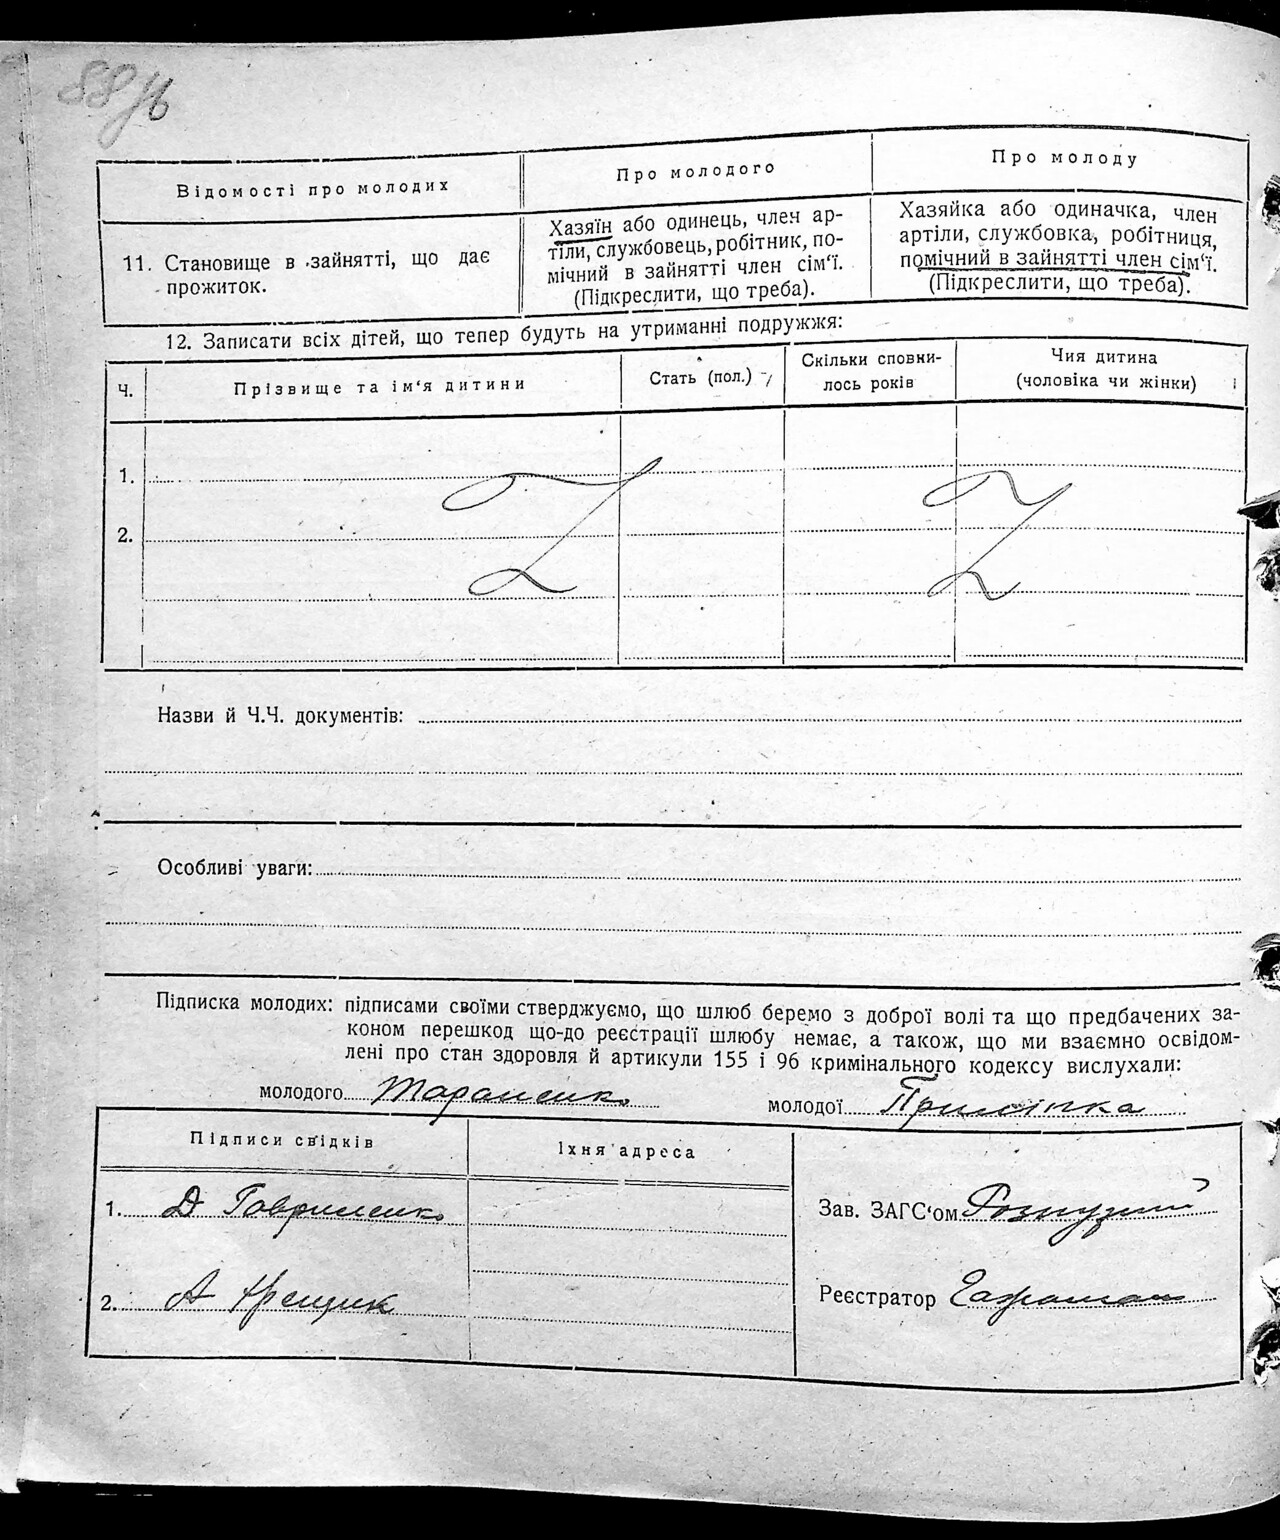 88
Відомості про молодих
Про молодого
Про молоду
11. Становище в зайнятті, що дає
прожиток.
Хазяїн або одинець, член ар-
тіли, службовець, робітник, по-
мічний в зайнятті член сім‘ї.
(Підкреслити, що треба).
Хазяйка або одиначка, член
артіли, службовка, робітниця,
помічний в зайнятті член сім‘ї.
(Підкреслити, що треба).
12. Записати всіх дітей, що тепер будуть на утриманні подружжя:
Ч.
Прізвище та ім‘я дитини
Стать (пол.)
Скільки сповни-
лось років
Чия дитина
(чоловіка чи жінки)
1.
2.
Назви й Ч.Ч. документів:
Особливі уваги:
Підписка молодих: підписами своїми стверджуємо, що шлюб беремо з доброї волі та що предбачених за-
коном перешкод що-до реєстрації шлюбу немає, а також, що ми взаємно освідом-
лені про стан здоровля й артикули 155 і 96 кримінального кодексу вислухали:
молодого Тараненко молодої
Підписи свідків
Їхня адреса
1. Д Гавриленко
2. А
Зав. ЗАГС‘ом
Реєстратор